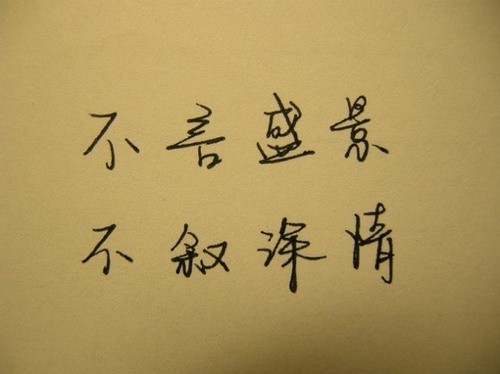 不言盛景
不叙深情